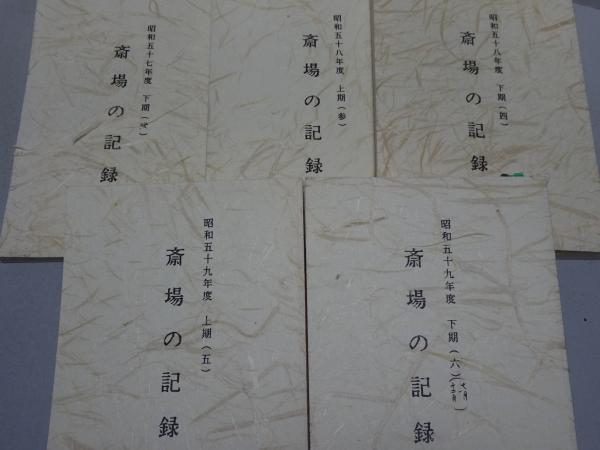 昭和五十七年度 下期(弐)
斎場の記録
昭和五十八年度 上期(参)
斎場の記録
昭和五十八年度 下期(四)
斎場の記録
昭和五十九年度 上期(五)
斎場の記録
昭和五十九年度 下期(六)
斎場の記録